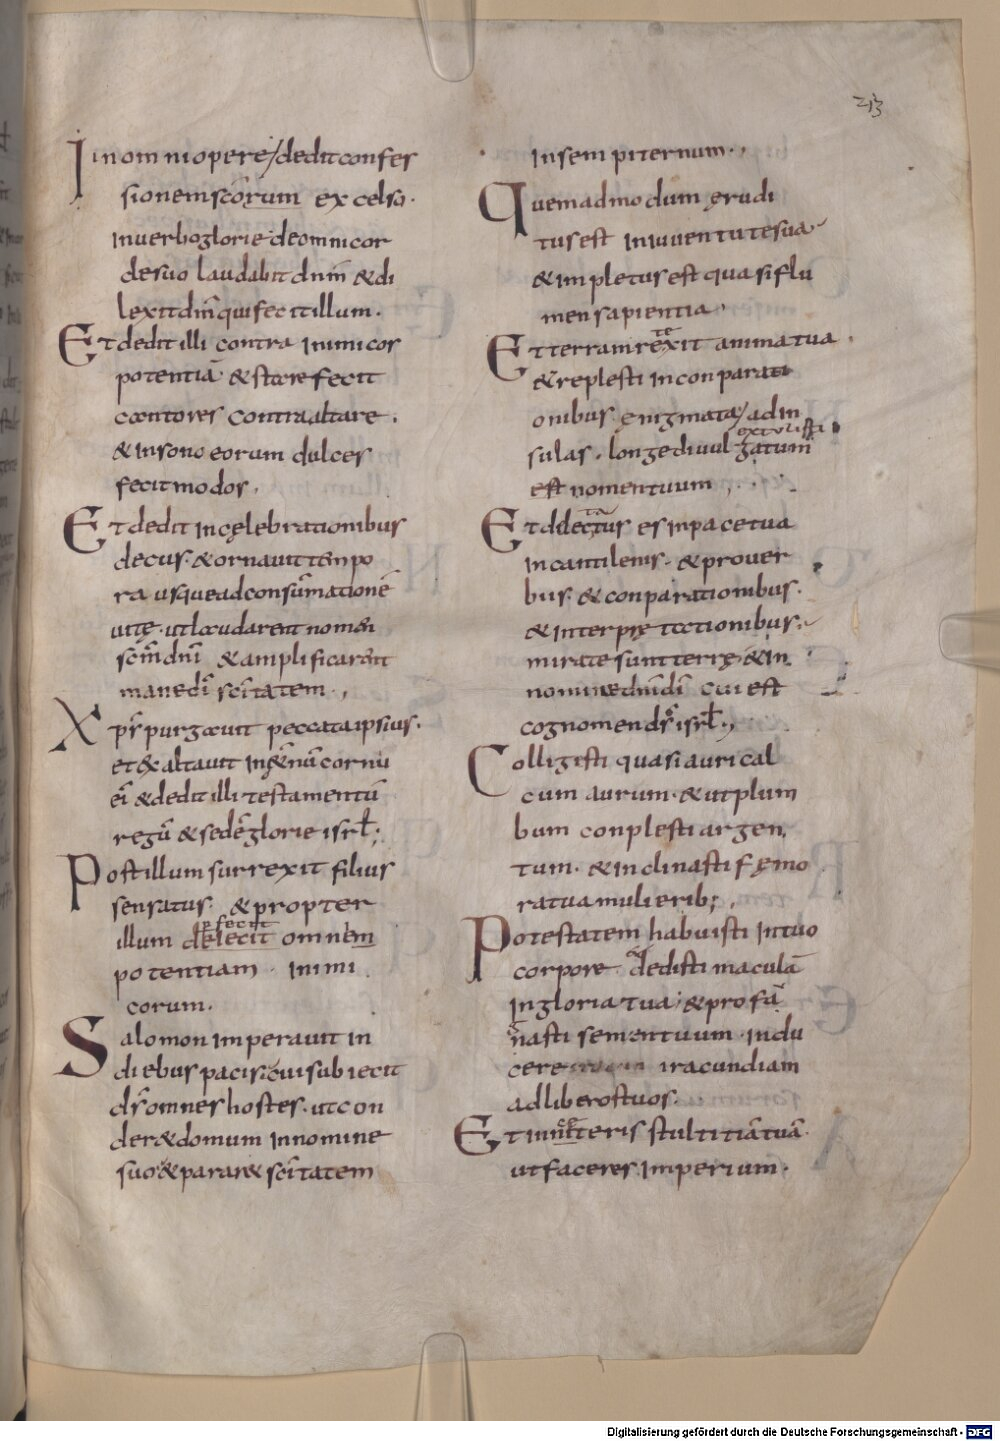 213
In omni opere dedit confes
sionem sc̄orum excelso·
in uerbo glorie· de omni cor
de suo laudabit dnm̄ & di
lexit dm̄ qui fecit illum·
Et dedit illi contra inimicos
potentiā & stare fecit
cantores contra altare·
& in sono eorum dulces
fecit modos·
Et dedit in cęlebrationibus
decus· & ornauit tempo
ra usque ad consūmationē
uitę· ut laudarent nomen
sc̄m dnī & amplificarent
mane dī sc̄itatem·,
Xp̄s purgauit peccata ipsius·
et exaltauit in &nū cornu
eī & dedit illi testamentū
regū & sedē glorie isrl̄;
Post illum surrexit filius
sensatus· & propter
fecit
illum deiecit omnem
potentiam· inimi
corum·
Salomon imperauit in
diebus pacis· cui subiecit
ds̄ omnes hostes· ut con
der& domum in nomine
suo· & parar& sc̄itatem
in sempiternum·,
Quemadmodum ęrudi
tus est in iuuentute sua
& impletus est quasi flu
men sapientia·
te
Et terram rexit anima tua
& replesti in conparati
onibus ęnigmata/ ad in
extulisti
sulas· longe diuulgatum
est nomen tuum
ta
Et dilectus es in pace tua
in cantilenis· & prouer
biis· & conparationibus·
& interpretationibus·
mirate sunt terrę· & in
nomine dnī dī cui est
cognomen ds̄ isrl̄·,
Colligisti quasi aurical
cum aurum· & ut plum
bum conplesti argen
tum· & inclinasti fęmo
ra tua mulierib;·,
Potestatem habuisti in tuo
corpore dedisti maculā
in gloria tua; & profā
nasti semen tuum· indu
cere iracundiam
ad liberos tuos·
Et in &teris stultitiā tuā·
ut faceres imperium·
Digitalisierung gefördert durch die Deutsche Forschungsgemeinschaft - DFG